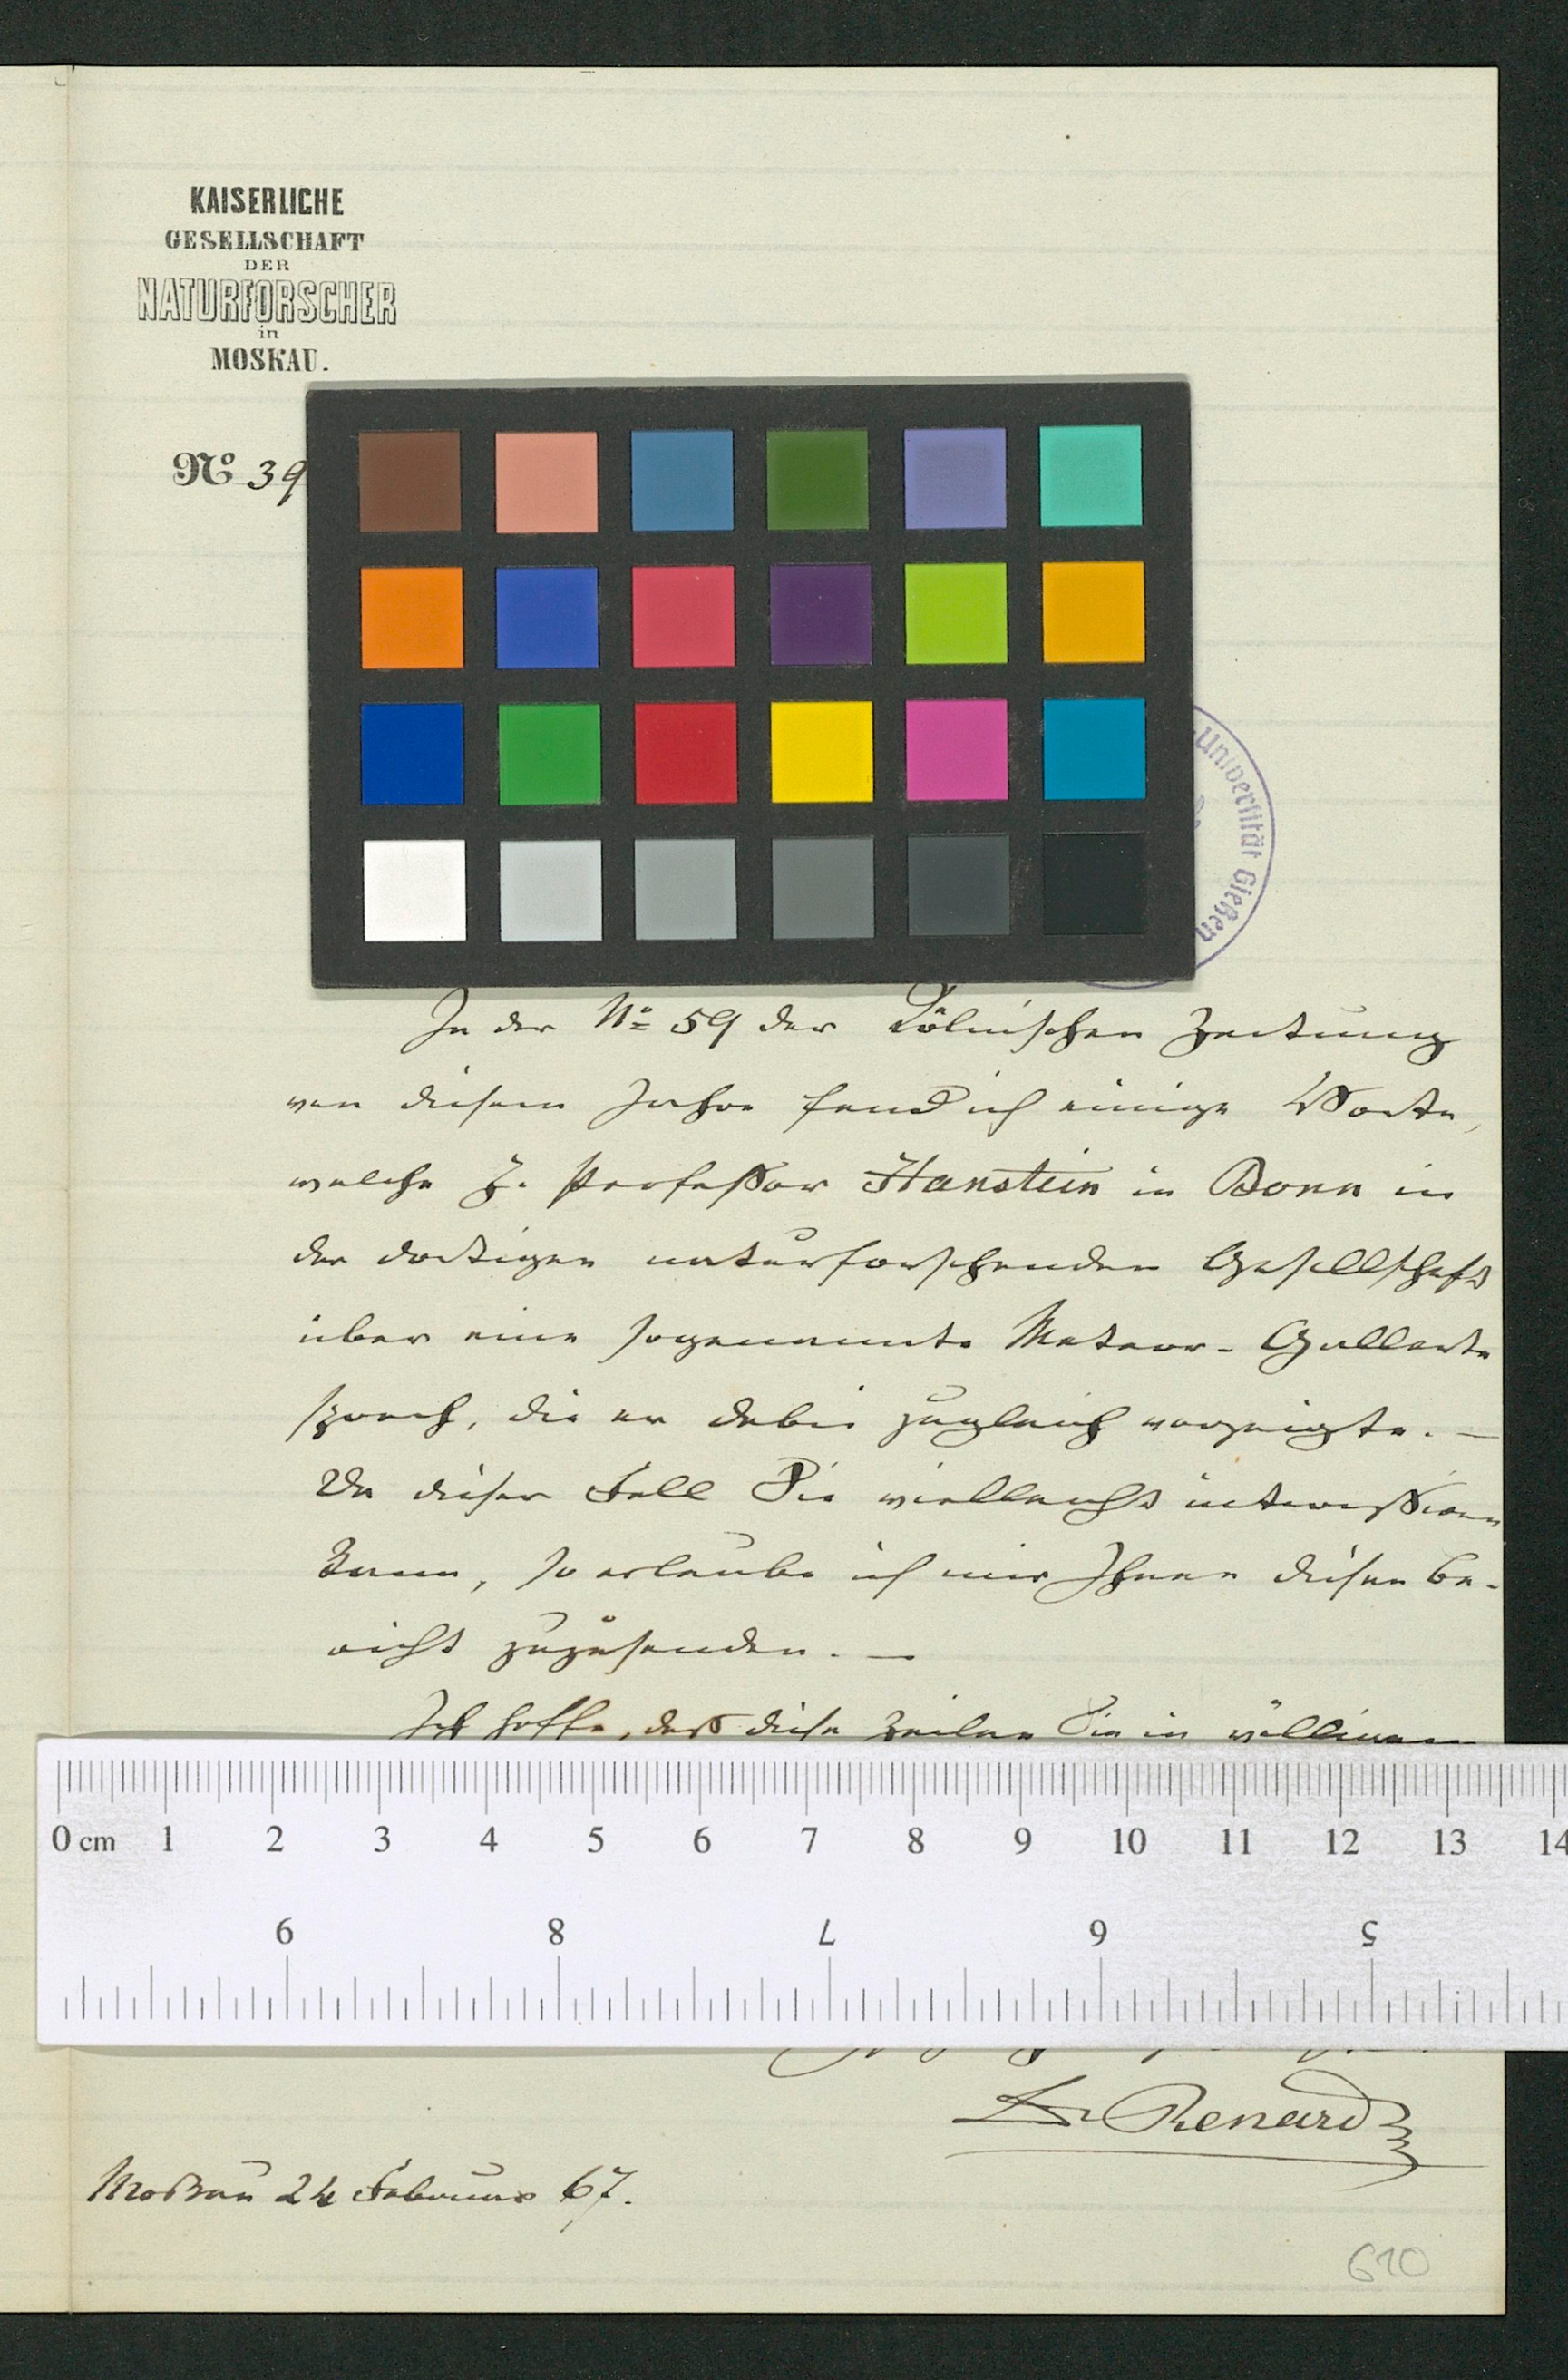 KAISERLICHE
GESELLSCHAFT
DER
NATURFORSCHER
in
MOSKAU.
No 39
Universität Gießen
In der No 59 der Kölnischen Zeitung
von diesem Jahre fand ich einige Worte,
welche H. Professor Hanstein in Bonn in
der dortigen naturforschenden Gesellschaft
über eine sogenannte Meteor-Gallerte
sprach, die er dabei zugleich vorzeigte. —
Da dieser Fall Sie vielleicht interessiren
kann, so erlaube ich mir Ihnen diesen Be-
richt zuzusenden. —
Ich hoffe, daß diese Zeilen Sie in völligem
0 cm 1 2 3 4 5 6 7 8 9 10 11 12 13 14
9 8 7 6 5
Dr Renard
Moskau 24 Februar 67.
610